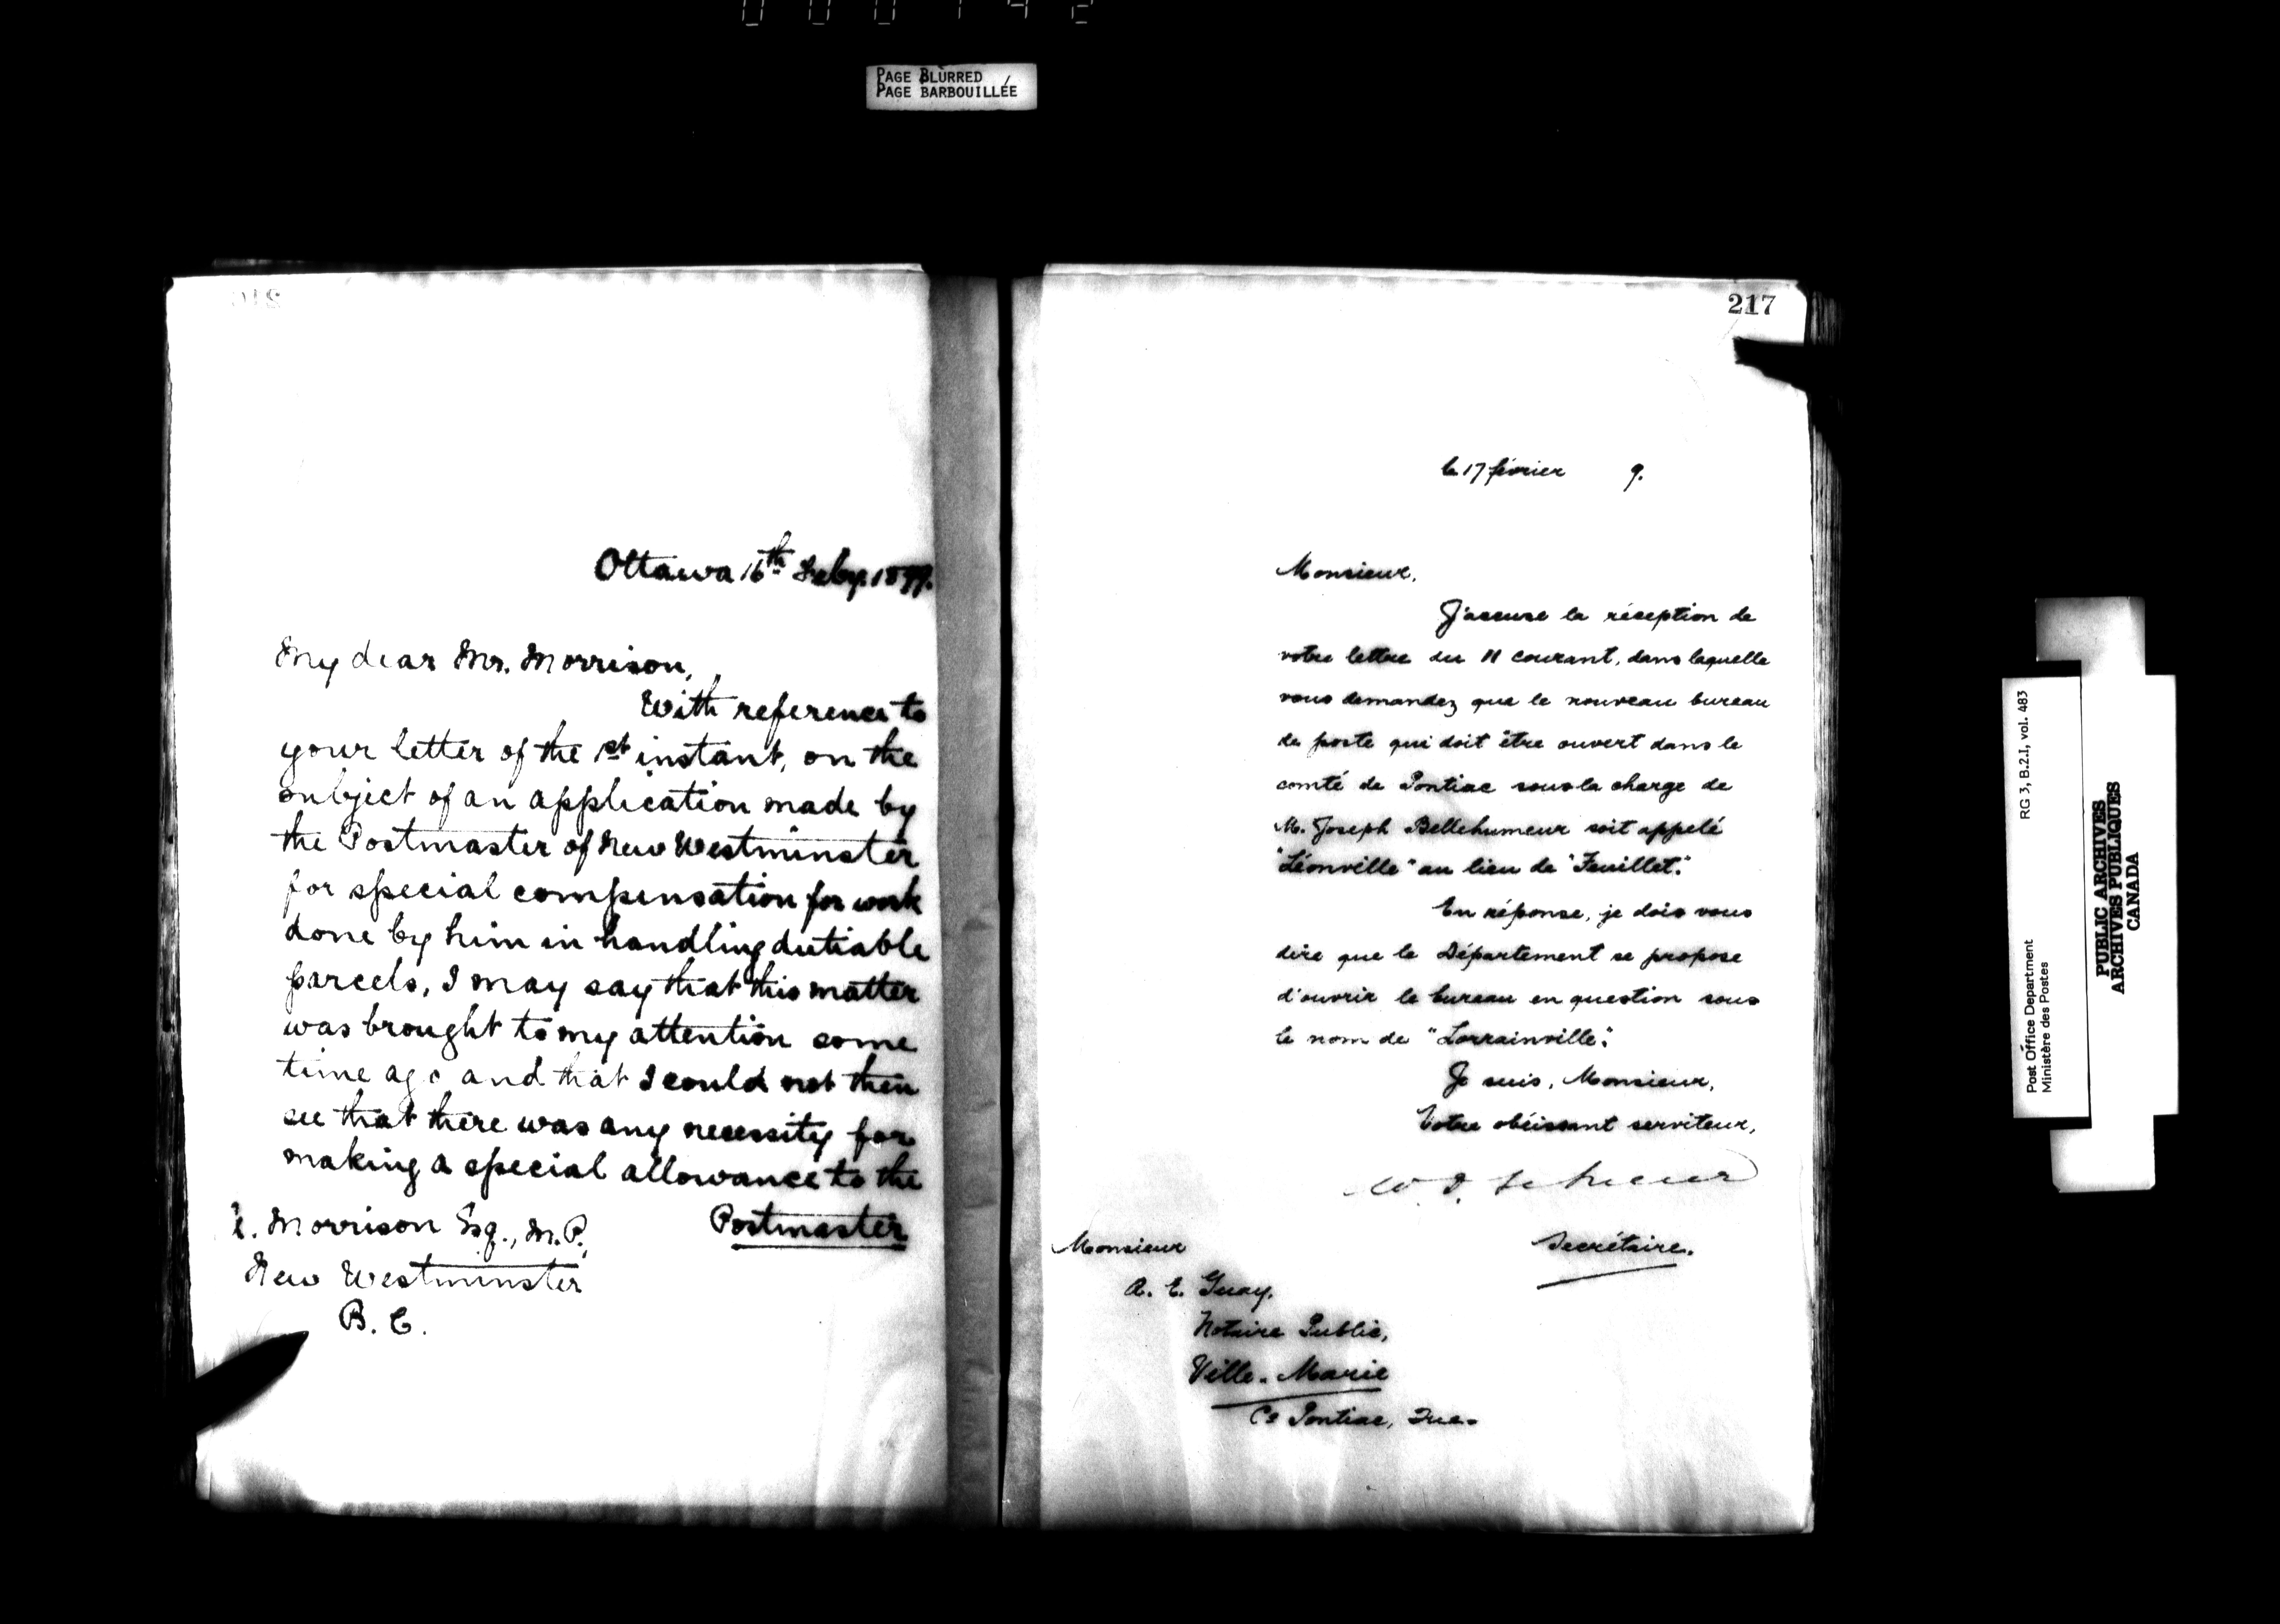 000142
PAGE BLURRED
PAGE BARBOUILLÉE
Ottawa 16th Feby. 1899.
My dear Mr. Morrison,
With reference to
your letter of the 1st instant, on the
subject of an application made by
the Postmaster of New Westminster
for special compensation for work
done by him in handling dutiable
parcels, I may say that this matter
was brought to my attention some
time ago and that I could not then
see that there was any necessity for
making a special allowance to the
Postmaster
Morrison Esq., M.P.,
New Westminster
B.C.
217
le 17 février 9.
Monsieur,
J'accuse la réception de
votre lettre du 11 courant, dans laquelle
vous demandez que le nouveau bureau
de poste qui doit être ouvert dans le
comté de Pontiac sous la charge de
M. Joseph Bellehumeur soit appelé
"Léonville" au lieu de "Feuillet".
En réponse, je dois vous
dire que le Département se propose
d'ouvrir le bureau en question sous
le nom de "Lorrainville".
Je suis, Monsieur,
Votre obéissant serviteur,
Secrétaire.
Monsieur
A. E. Guay,
Notaire Public,
Ville-Marie
Co Pontiac, Que.
Post Office Department
Ministère des Postes
RG 3, B.2.I, vol. 483
PUBLIC ARCHIVES
ARCHIVES PUBLIQUES
CANADA